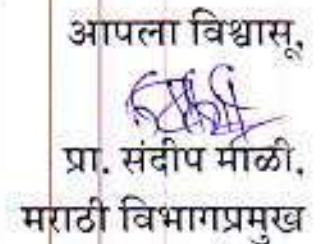 आपला विश्वासू,
प्रा. संदीप माळी,
मराठी विभागप्रमुख